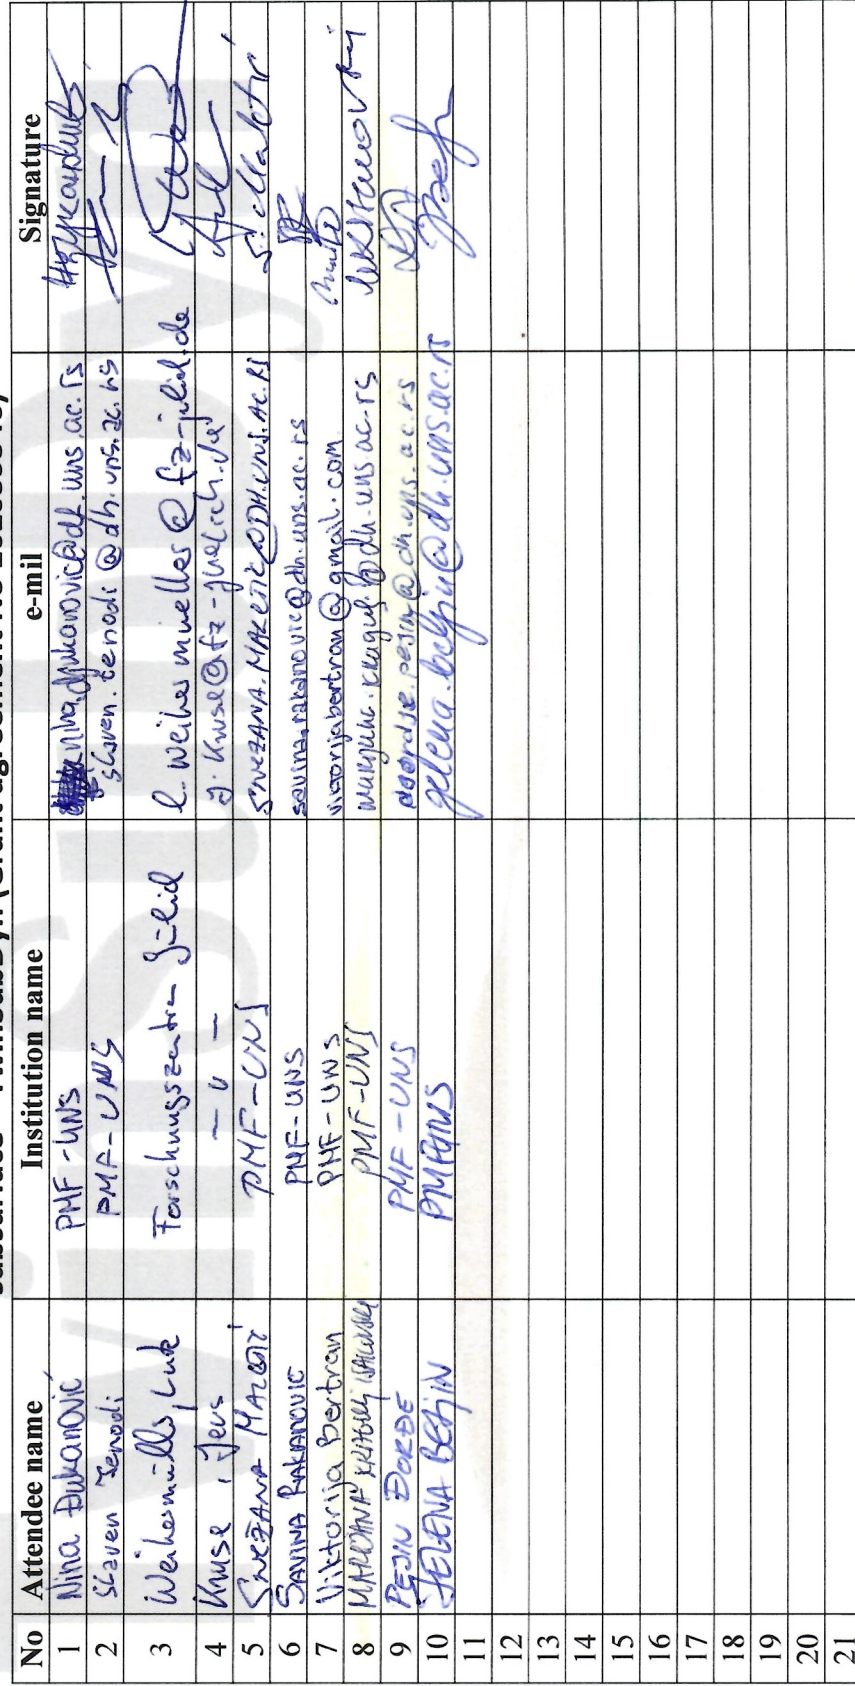 subsurface - TwinSubDyn (Grant agreement No
No Attendee name Institution name e-mil Signature
1 Nina Đukanović PMF-UNS nina.djukanovic@dh.uns.ac.rs
2 Slaven Tenodi PMF-UNS slaven.tenodi@dh.uns.ac.rs
3 Weihermüller, Lutz Forschungszentrum Jülich l.weihermueller@fz-jülich.de
4 Kruse, Jens — " — j.kruse@fz-juelich.de
5 SNEŽANA MALETIĆ PMF-UNS SNEZANA.MALETIC@DH.UNS.AC.RS S. Maletić
6 SAVINA RAKANOVIĆ PMF-UNS savina.rakanovic@dh.uns.ac.rs
7 Viktorija Bertran PMF-UNS viktorijabertran@gmail.com
8 MARIJANA KRAGULJ ISAKOVSKI PMF-UNS marijana.kragulj@dh.uns.ac.rs
9 PEJIN ĐORĐE PMF-UNS djordje.pejin@dh.uns.ac.rs
10 JELENA BELJIN PMFUNS jelena.beljin@dh.uns.ac.rs
11
12
13
14
15
16
17
18
19
20
21
TwinSubDyn